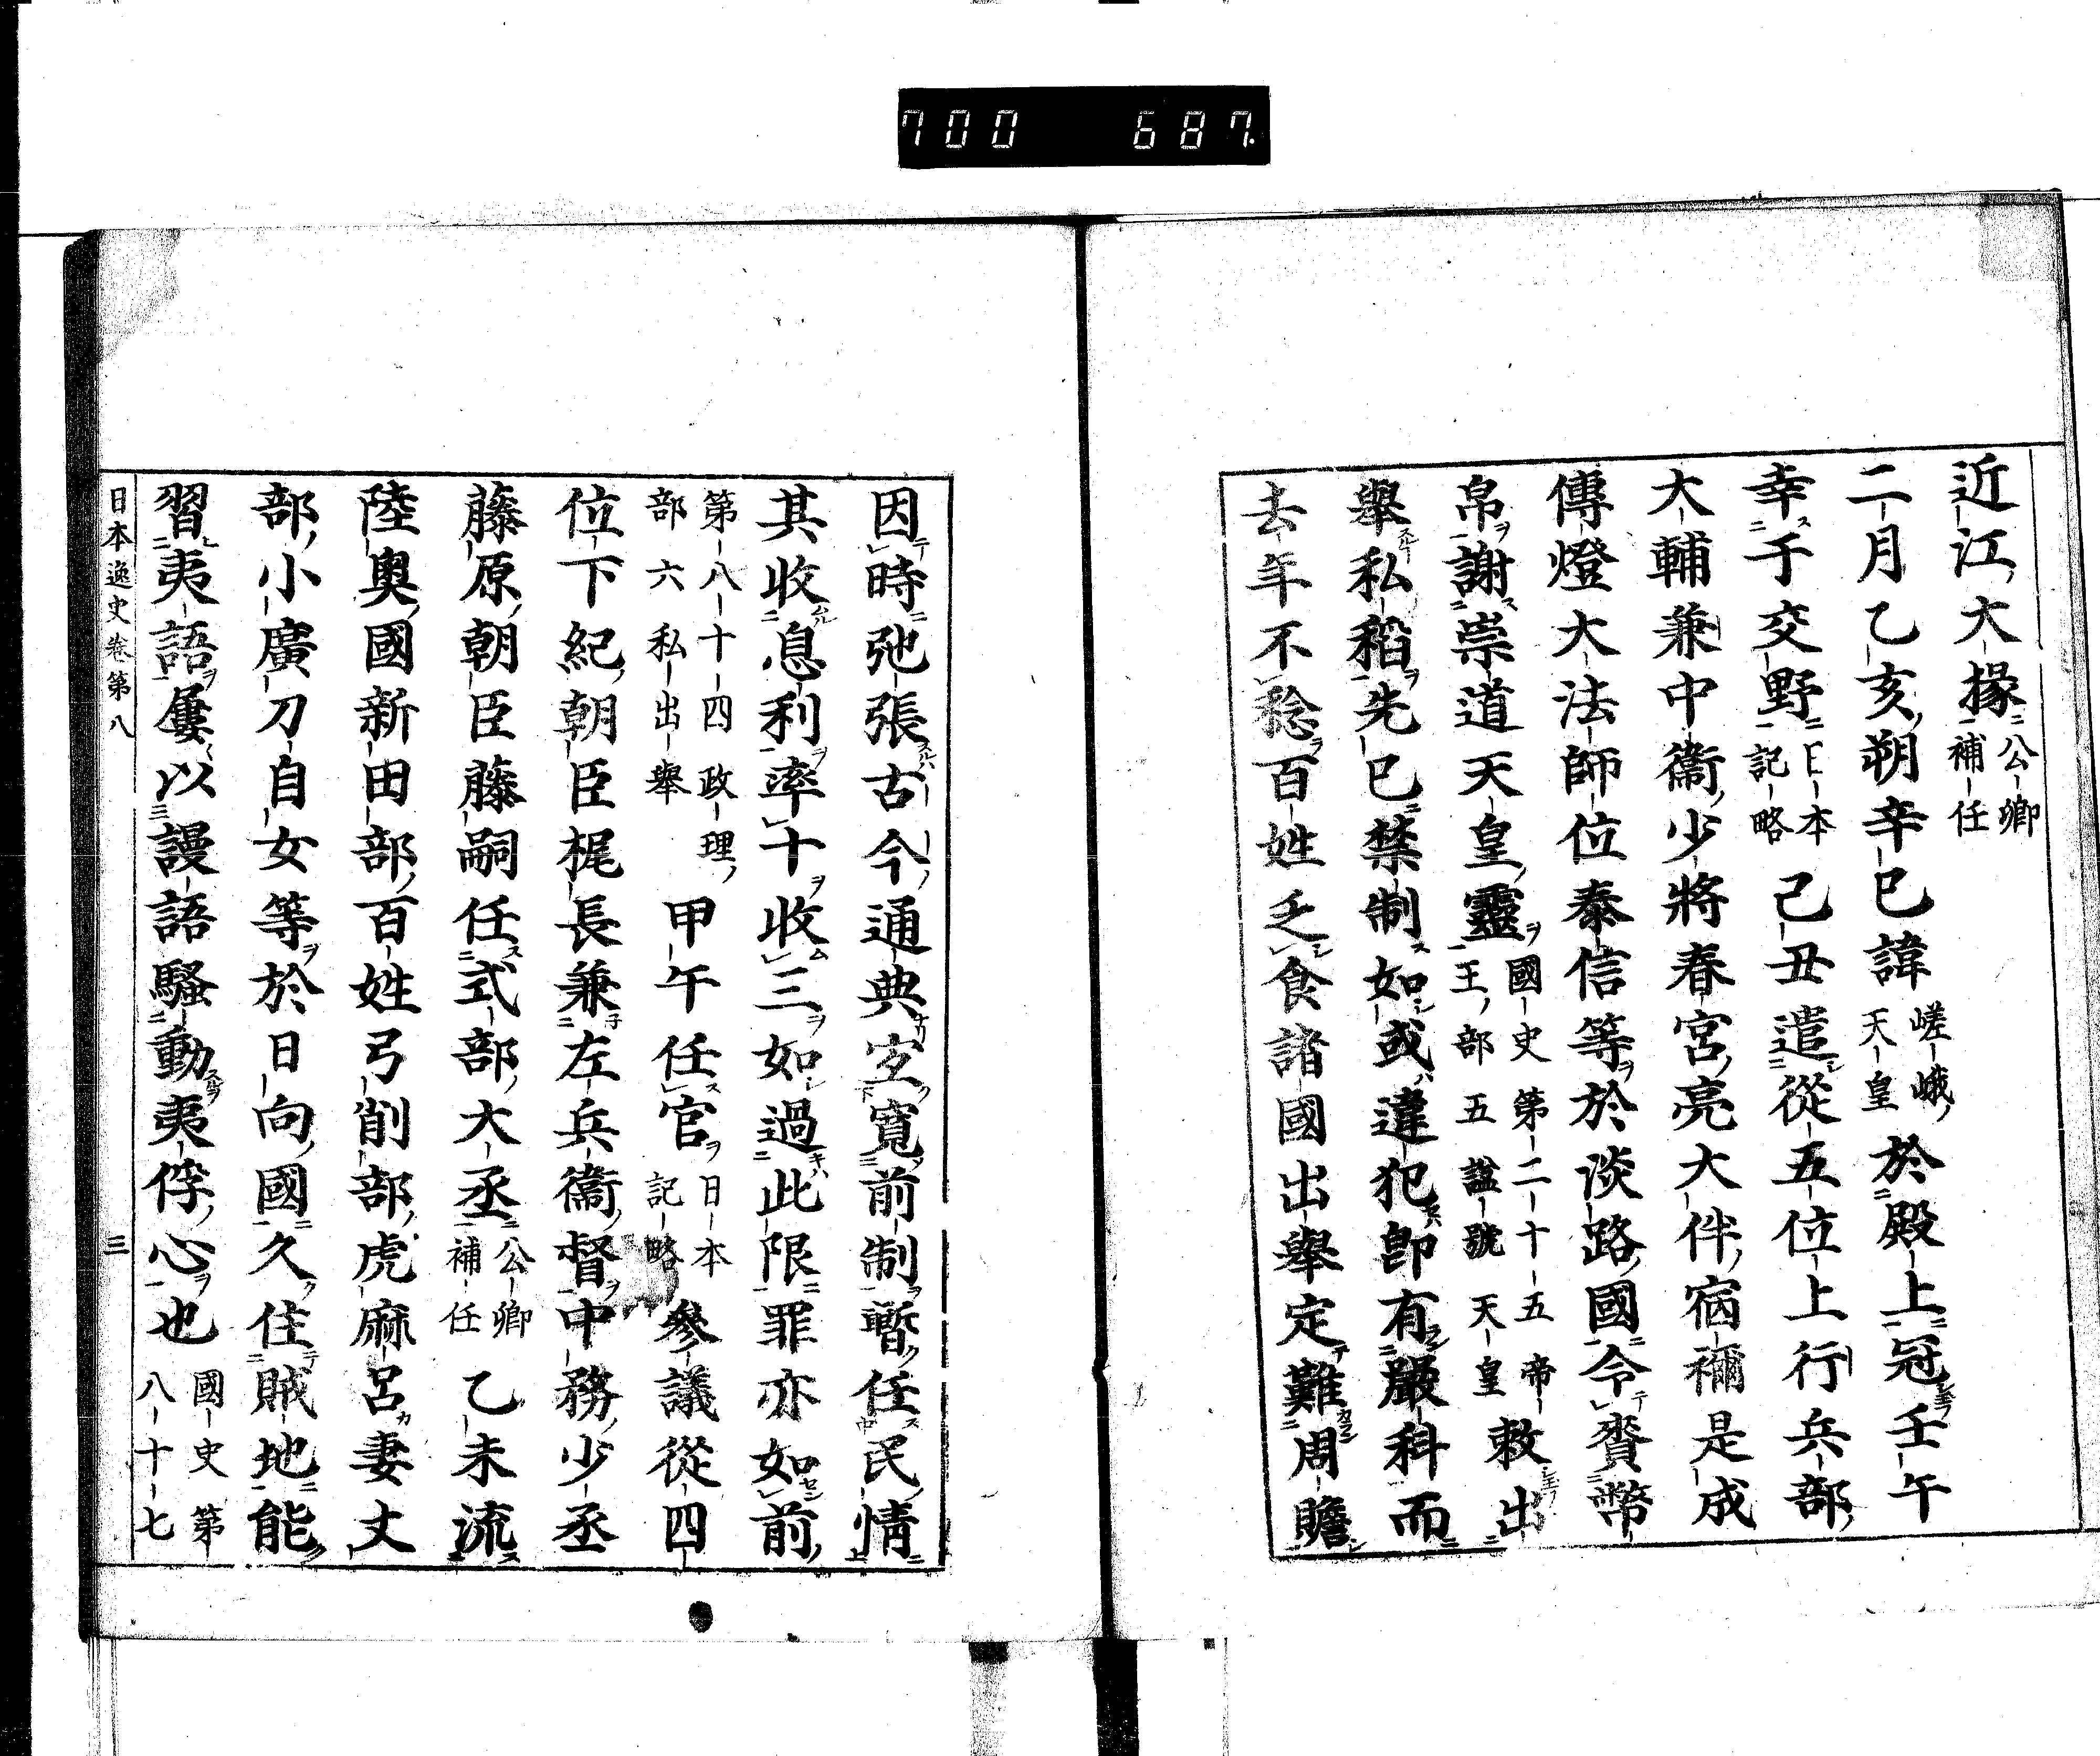 700 687.
近江大掾公卿補任
二月乙亥朔辛巳諱嵯峨天皇於殿上冠壬午
幸于交野日本記略己丑遣從五位上行兵部
大輔兼中衞少將春宮亮大伴宿禰是成
傳燈大法師位泰信等於淡路國令賷幣
帛謝崇道天皇靈國史第二十五帝王部五諡號天皇敕出
舉私稻先已禁制如或違犯卽有嚴科而
去年不稔百姓乏食諸國出舉定難周贍
因時弛張古今通典宐寬前制暫任民情
其收息利率十收三如過此限罪亦如前
第八十四政理部六私出舉甲午任官日本記略參議從四
位下紀朝臣梶長兼左兵衞督中務少丞
藤原朝臣藤嗣任式部大丞公卿補任乙未流
陸奧國新田部百姓弓削部虎麻呂妻丈
部小廣刀自女等於日向國久住賊地能
習夷語屢以謾語騷動夷俘心也國史第八十七
日本逸史卷第八 三